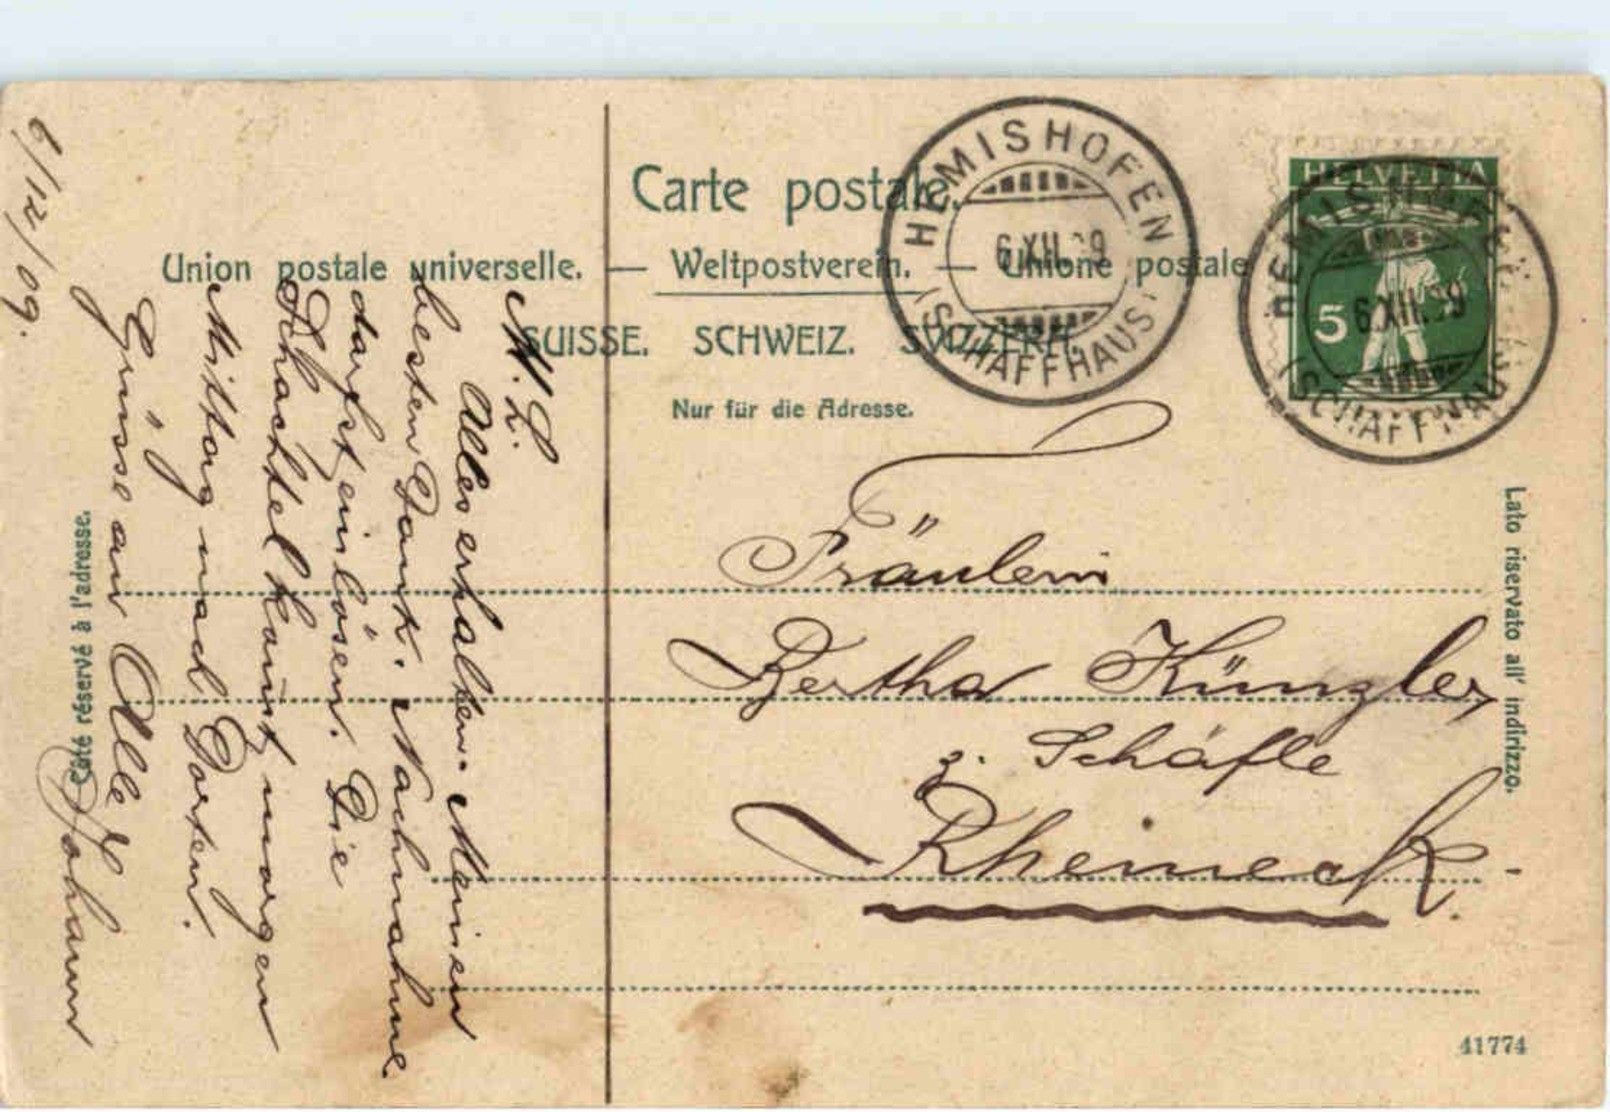 Carte postale.
Union postale universelle. — Weltpostverein. — Unione postale
SUISSE. SCHWEIZ. SVIZZERA.
Nur für die Adresse.
HEMISHOFEN
6.XII.09
(SCHAFFHAUS)
HELVETIA
5
HEMISHOFEN
6.XII.09
(SCHAFFHAUS)
Fräulein
Bertha Künzler
z. Schäfle
Rheineck.
Lato riservato all' indirizzo.
Côté réservé à l'adresse.
41774
M. L.
Alles erhalten. Meinen
besten Dank. Nachnahme
darfst einlösen. Die
Schachtel kommt morgen
Mittag nach Dorten.
Grüsse an Alle
Johann
6/12/09.